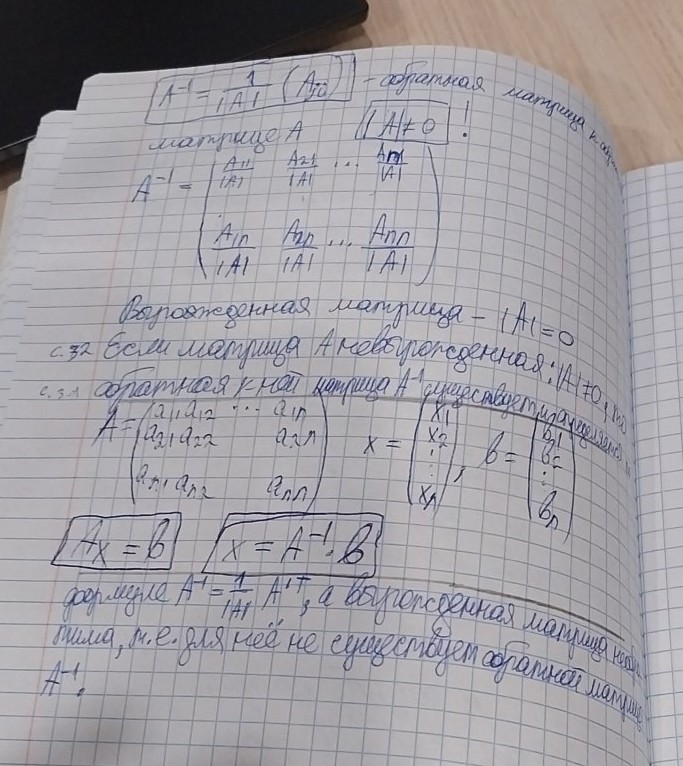 A⁻¹ = 1/|A| (Aji) - обратная матрица к
матрице A |A|≠0 !
A⁻¹ = ( A11/|A| A21/|A| ... An1/|A|
A1n/|A| A2n/|A| ... Ann/|A| )
Вырожденная матрица - |A|=0
с.32 Если матрица A невырожденная: |A|≠0, то
обратная к ней матрица A⁻¹ существует и определяется
A = ( a11 a12 ... a1n
a21 a22 a2n
an1 an2 ann )
x = ( x1 x2 : : xn ), b = ( b1 b2 : : bn )
Ax = b x = A⁻¹·b
формуле A⁻¹ = 1/|A| A'ᵀ, а вырожденная матрица
тима, т.е. для неё не существует обратной
A⁻¹.